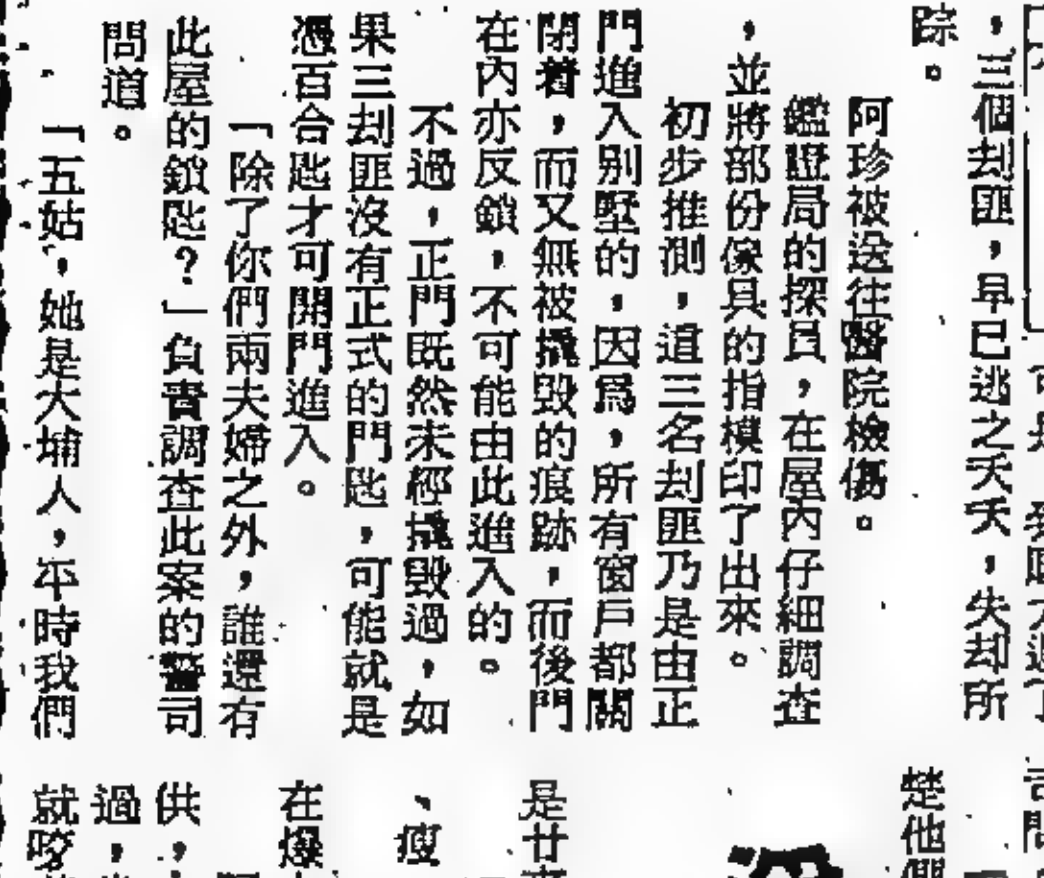 ，三個刦匪，早已逃之夭夭，失却所
踪。
阿珍被送往醫院檢傷。
鑑證局的探員，在屋內仔細調查
，並將部份傢具的指模印了出來。
初步推測，這三名刦匪乃是由正
門進入别墅的，因爲，所有窗戶都關
閉着，而又無被撬毀的痕跡，而後門
在內亦反鎖，不可能由此進入的。
不過，正門既然未經撬毀過，如
果三刦匪沒有正式的門匙，可能就是
憑百合匙才可開門進入。
「除了你們兩夫婦之外，誰還有
此屋的鎖匙？」負責調查此案的警司
問道。
「五姑，她是大埔人，平時我們
楚他們
是廿
、瘦
在爆
供，
過，
就咬